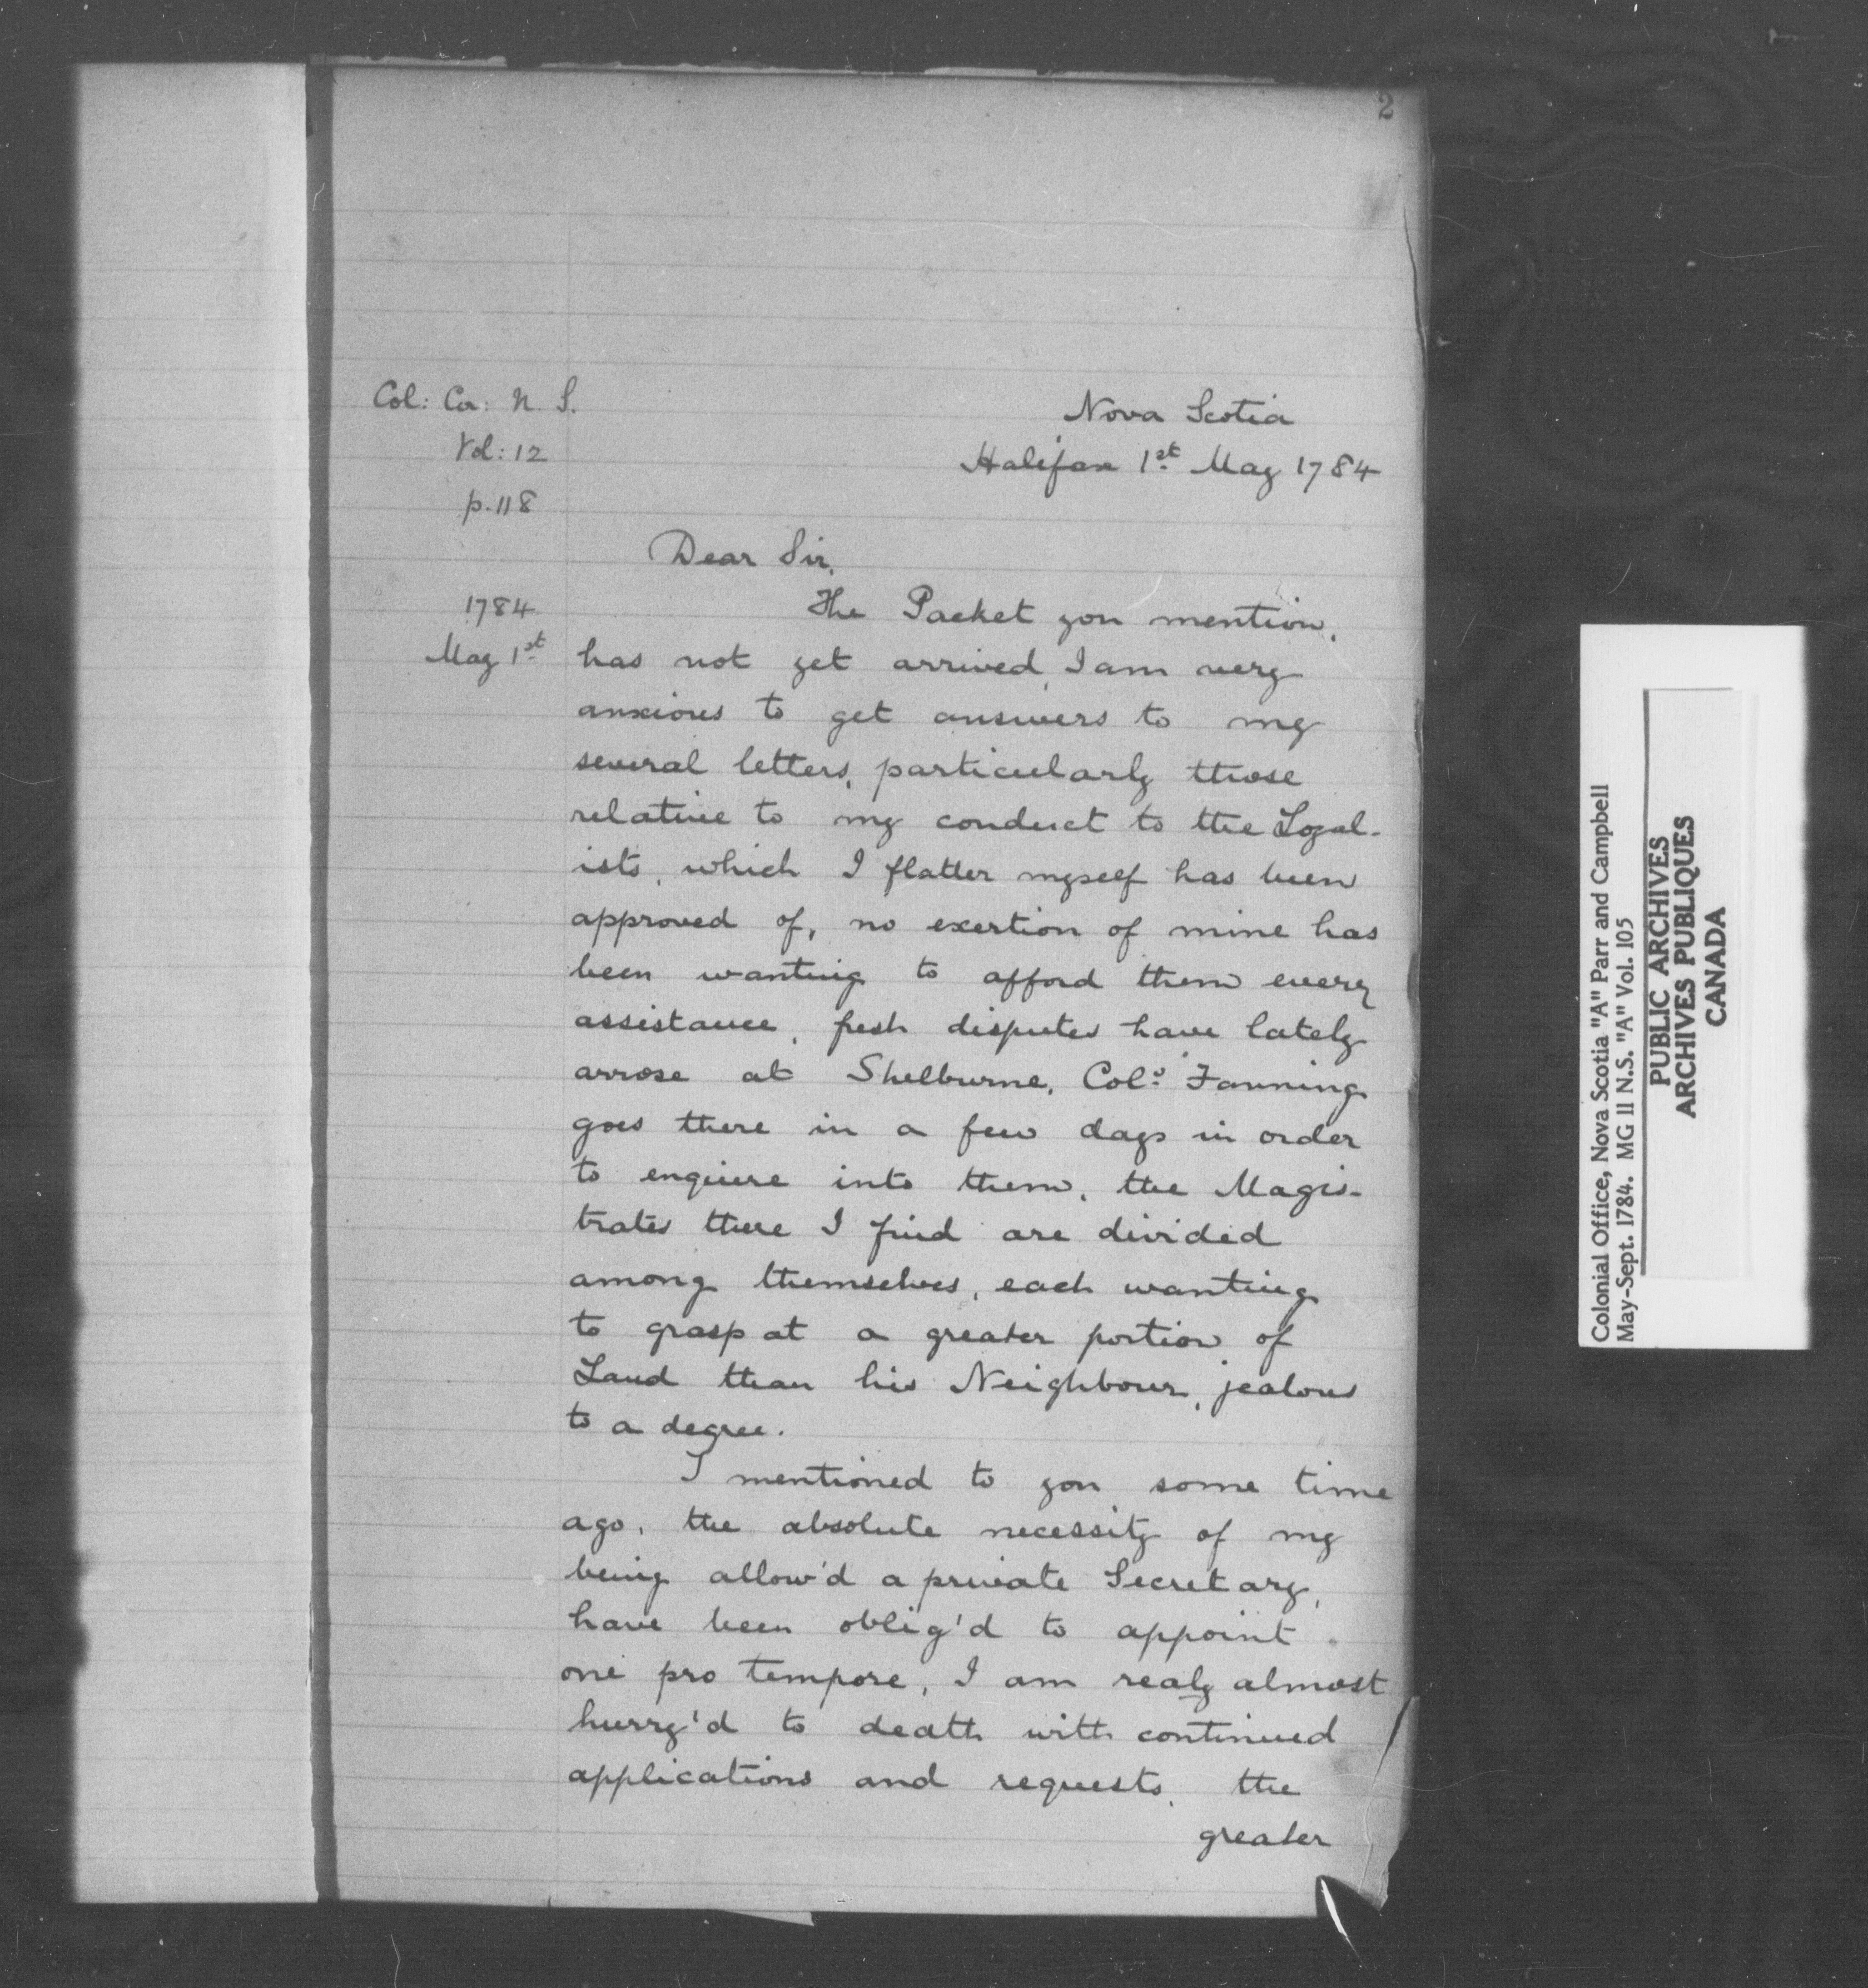 2
Col: Cor: N. S.
Vol: 12
p. 118
Nova Scotia
Halifax 1st May 1784
Dear Sir,
1784
May 1st
The Packet you mention,
has not yet arrived, I am very
anxious to get answers to my
several letters, particularly those
relative to my conduct to the Loyal-
ists, which I flatter myself has been
approved of, no exertion of mine has
been wanting to afford them every
assistance, fresh disputes have lately
arrose at Shelburne, Colo: Fanning
goes there in a few days in order
to enquire into them, the Magis-
trates there I find are divided
among themselves, each wanting
to grasp at a greater portion of
Land than his Neighbour, jealous
to a degree.
I mentioned to you some time
ago, the absolute necessity of my
being allow'd a private Secretary,
have been oblig'd to appoint
one pro tempore, I am realy almost
hurry'd to death with continued
applications and requests, the
greater
Colonial Office, Nova Scotia "A" Parr and Campbell
May-Sept. 1784. MG 11 N.S. "A" Vol. 105
PUBLIC ARCHIVES
ARCHIVES PUBLIQUES
CANADA